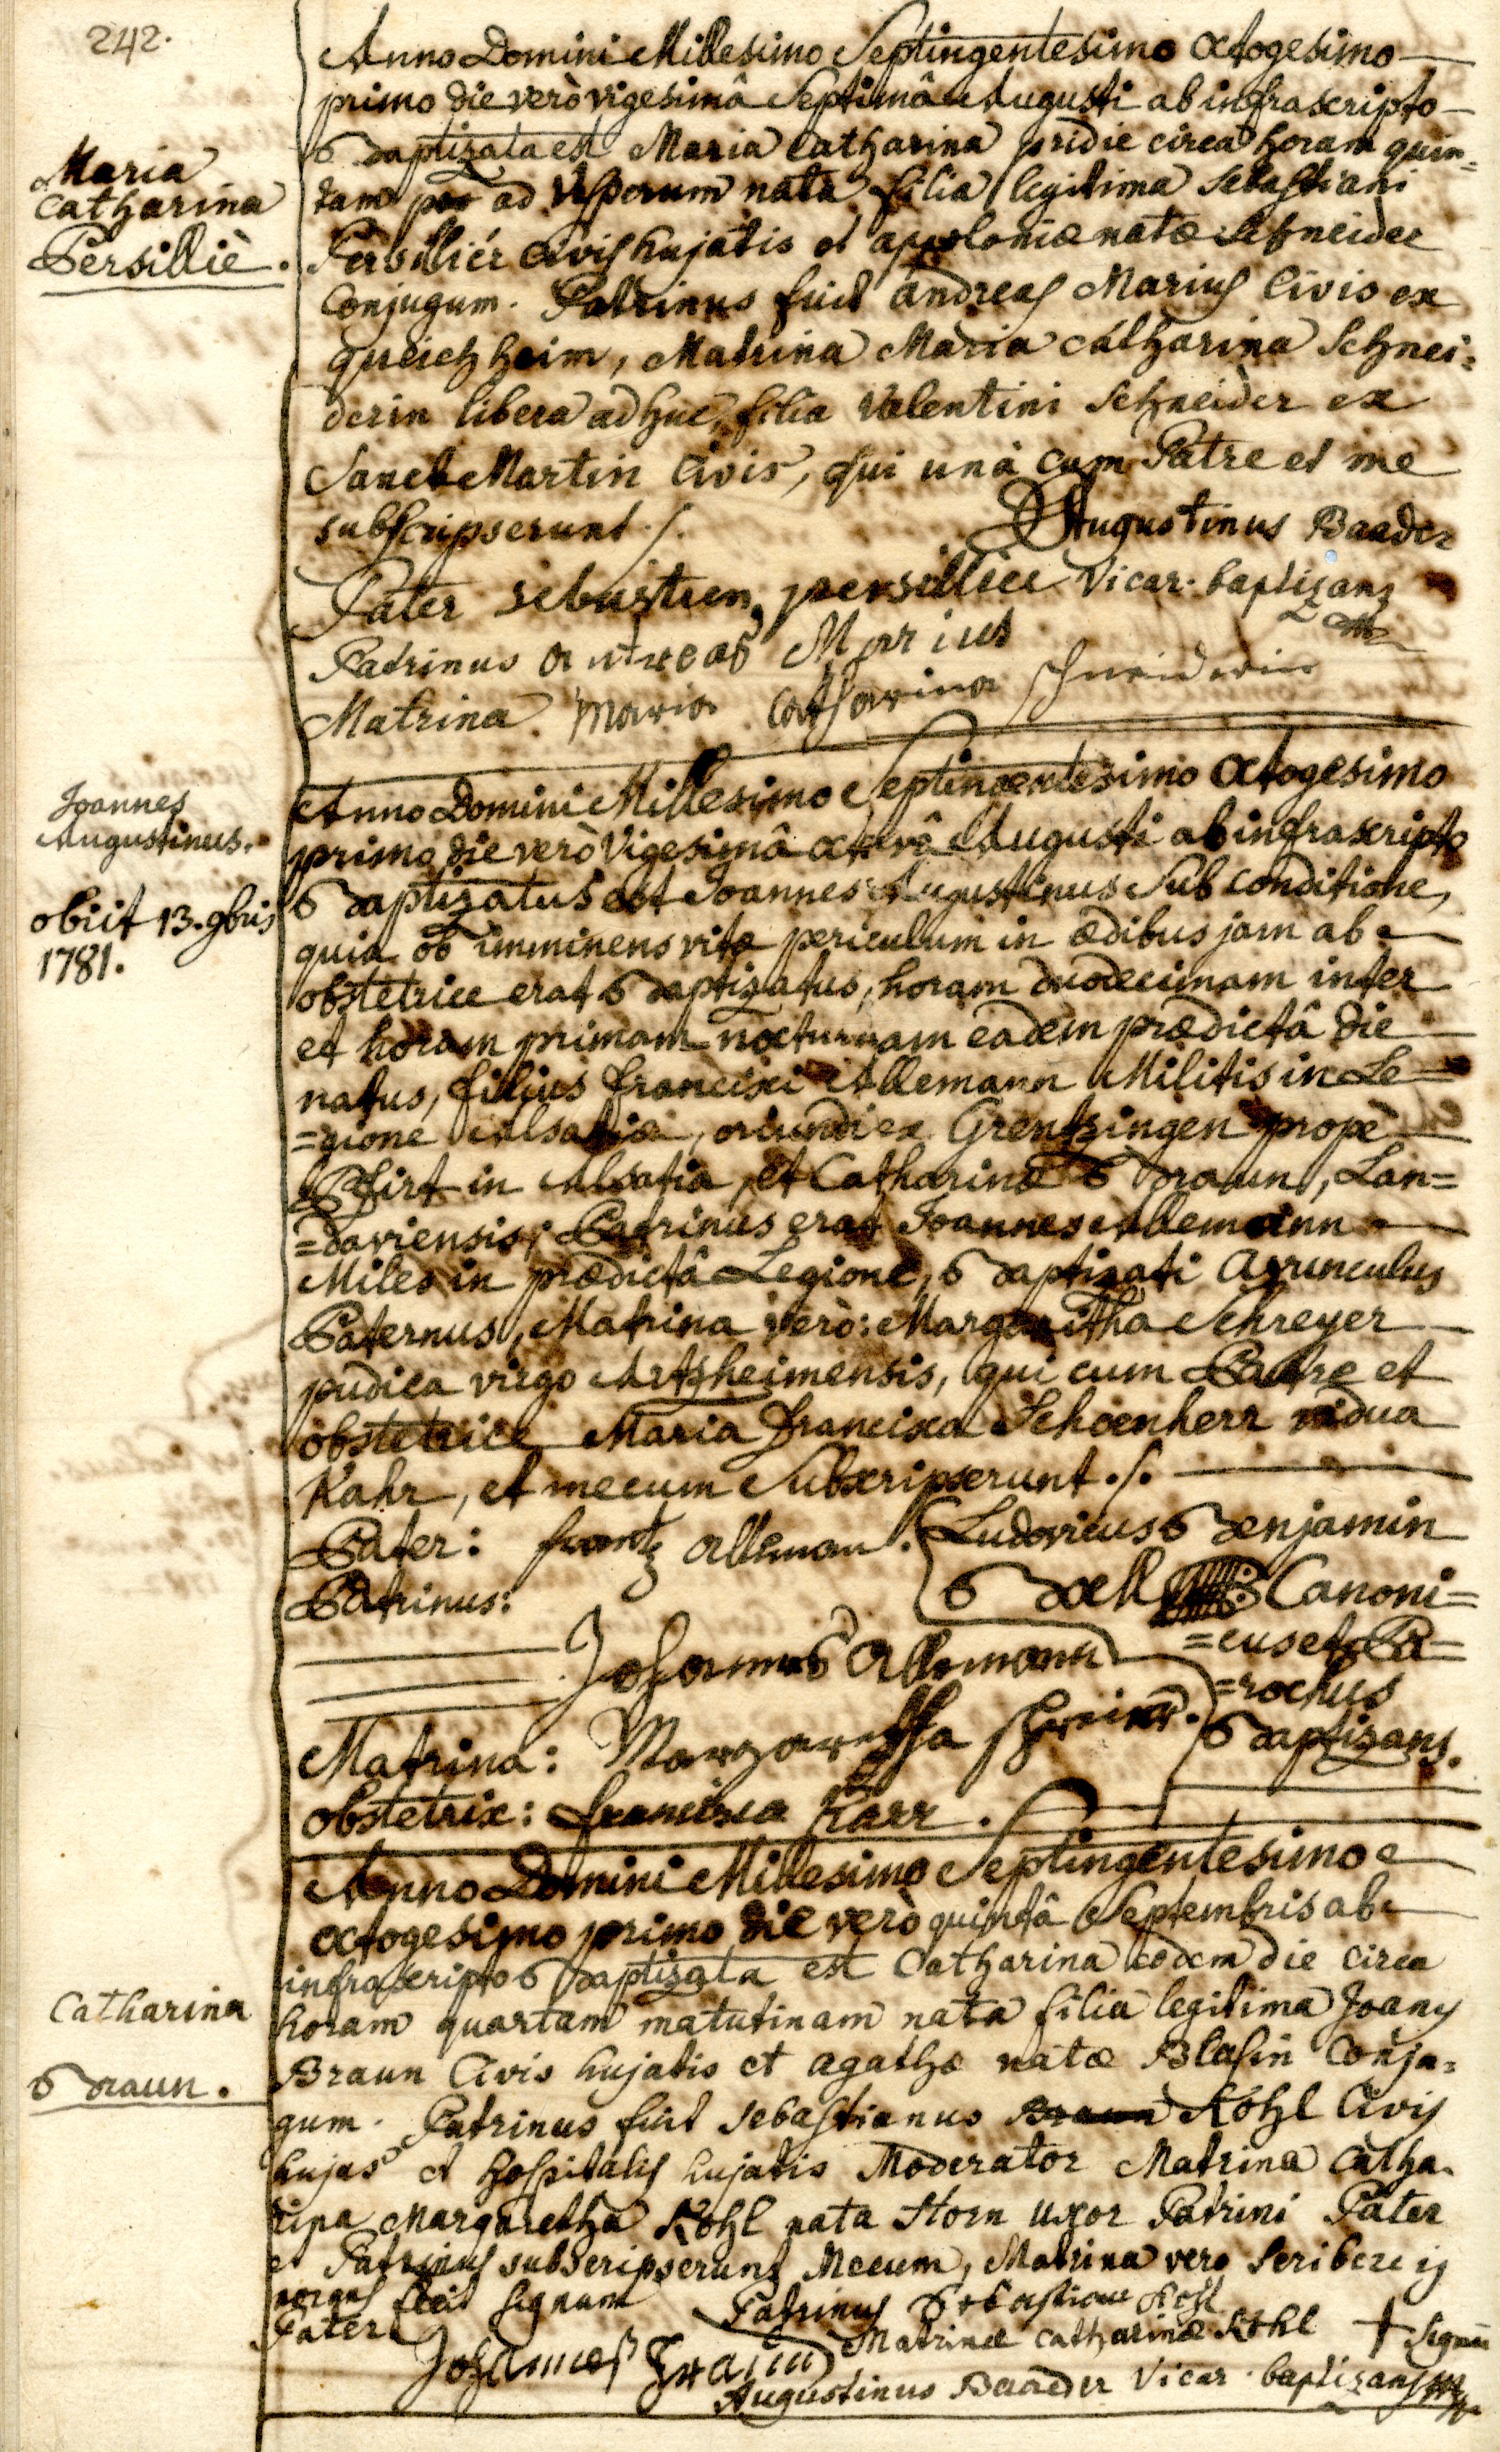 242.
Anno Domini Millesimo Septingentesimo Octogesimo
primo die verò vigesimâ Septimâ Augusti ab infrascripto
Baptizata est Maria Catharina pridie circa horam quin=
tam ad Vesperum nata filia legitima Sebastiani
Persillier Civis hujatis et appoloniæ natæ Schneider
Conjugum. Patrinus fuit andreas Marius Civis ex
queichheim, Matrina Maria Catharina Schnei=
derin libera adhuc, filia Valentini Schneider ex
Sanct Martin Civis, qui unà cum Patre et me
subscripserunt ./.
Augustinus Baader
Vicar. baptizans
Maria
Catharina
Persilliè.
Pater sebastien persillier
Patrinus andreas Marius
Matrina Maria Catharina Schneiderin
Anno Domini Millesimo Septingentesimo Octogesimo
primo die verò Vigesimâ octavâ Augusti ab infrascripto
Baptizatus est Joannes Augustinus Sub conditione,
quia ob imminens vitæ periculum in ædibus jam ab
obstetrice erat Baptizatus, horam duodecimam inter
et horam primam nocturnam eadem prædictâ die
natus, filius francisci Allemann Militis in Le=
=gione Alsatiæ, oriundi ex Grentzingen propè
Pfirt in Alsatia, et Catharinæ Braun, Lan=
=daviensis; Patrinus erat Joannes Allemann
Miles in prædictâ Legione, Baptizati Avunculus
Paternus, Matrina verò: Margaritha Schreyer
pudica virgo Artzheimensis, qui cum Patre et
obstetrice Maria Francisca Schoenherr vidua
Kahr, et mecum Subscripserunt ./.
Joannes
Augustinus.
obiit 13. 9bris
1781.
Pater: frantz alleman.
Patrinus:
Johannes Allemann
Matrina: Margaretha
obstetrix: francisca Karr.
Ludovicus Benjamin
Canoni=
=cus et Pa=
=rochus
Baptizans.
Anno Domini Millesimo Septingentesimo
octogesimo primo die verò quintâ Septembris ab
infrascripto Baptizata est Catharina eodem die circa
horam quartam matutinam nata filia legitima Joanis
Braun Civis hujatis et agathæ natæ Blasin Conju=
gum. Patrinus fuit Sebastianus Braun Kohl Civis
hujas et Hospitalis hujatis Moderator Matrina Catha=
rina Margaretha Kohl nata Horn uxor Patrini Pater
et Patrinus subscripserunt Mecum, Matrina vero Scribere ig
norans fecit signum
Catharina
Braun.
Pater Johannes Braun
Patrinus Sebastian Kohl
Matrinæ Catharinæ Kohl + Signum
Augustinus Baader Vicar. baptizans